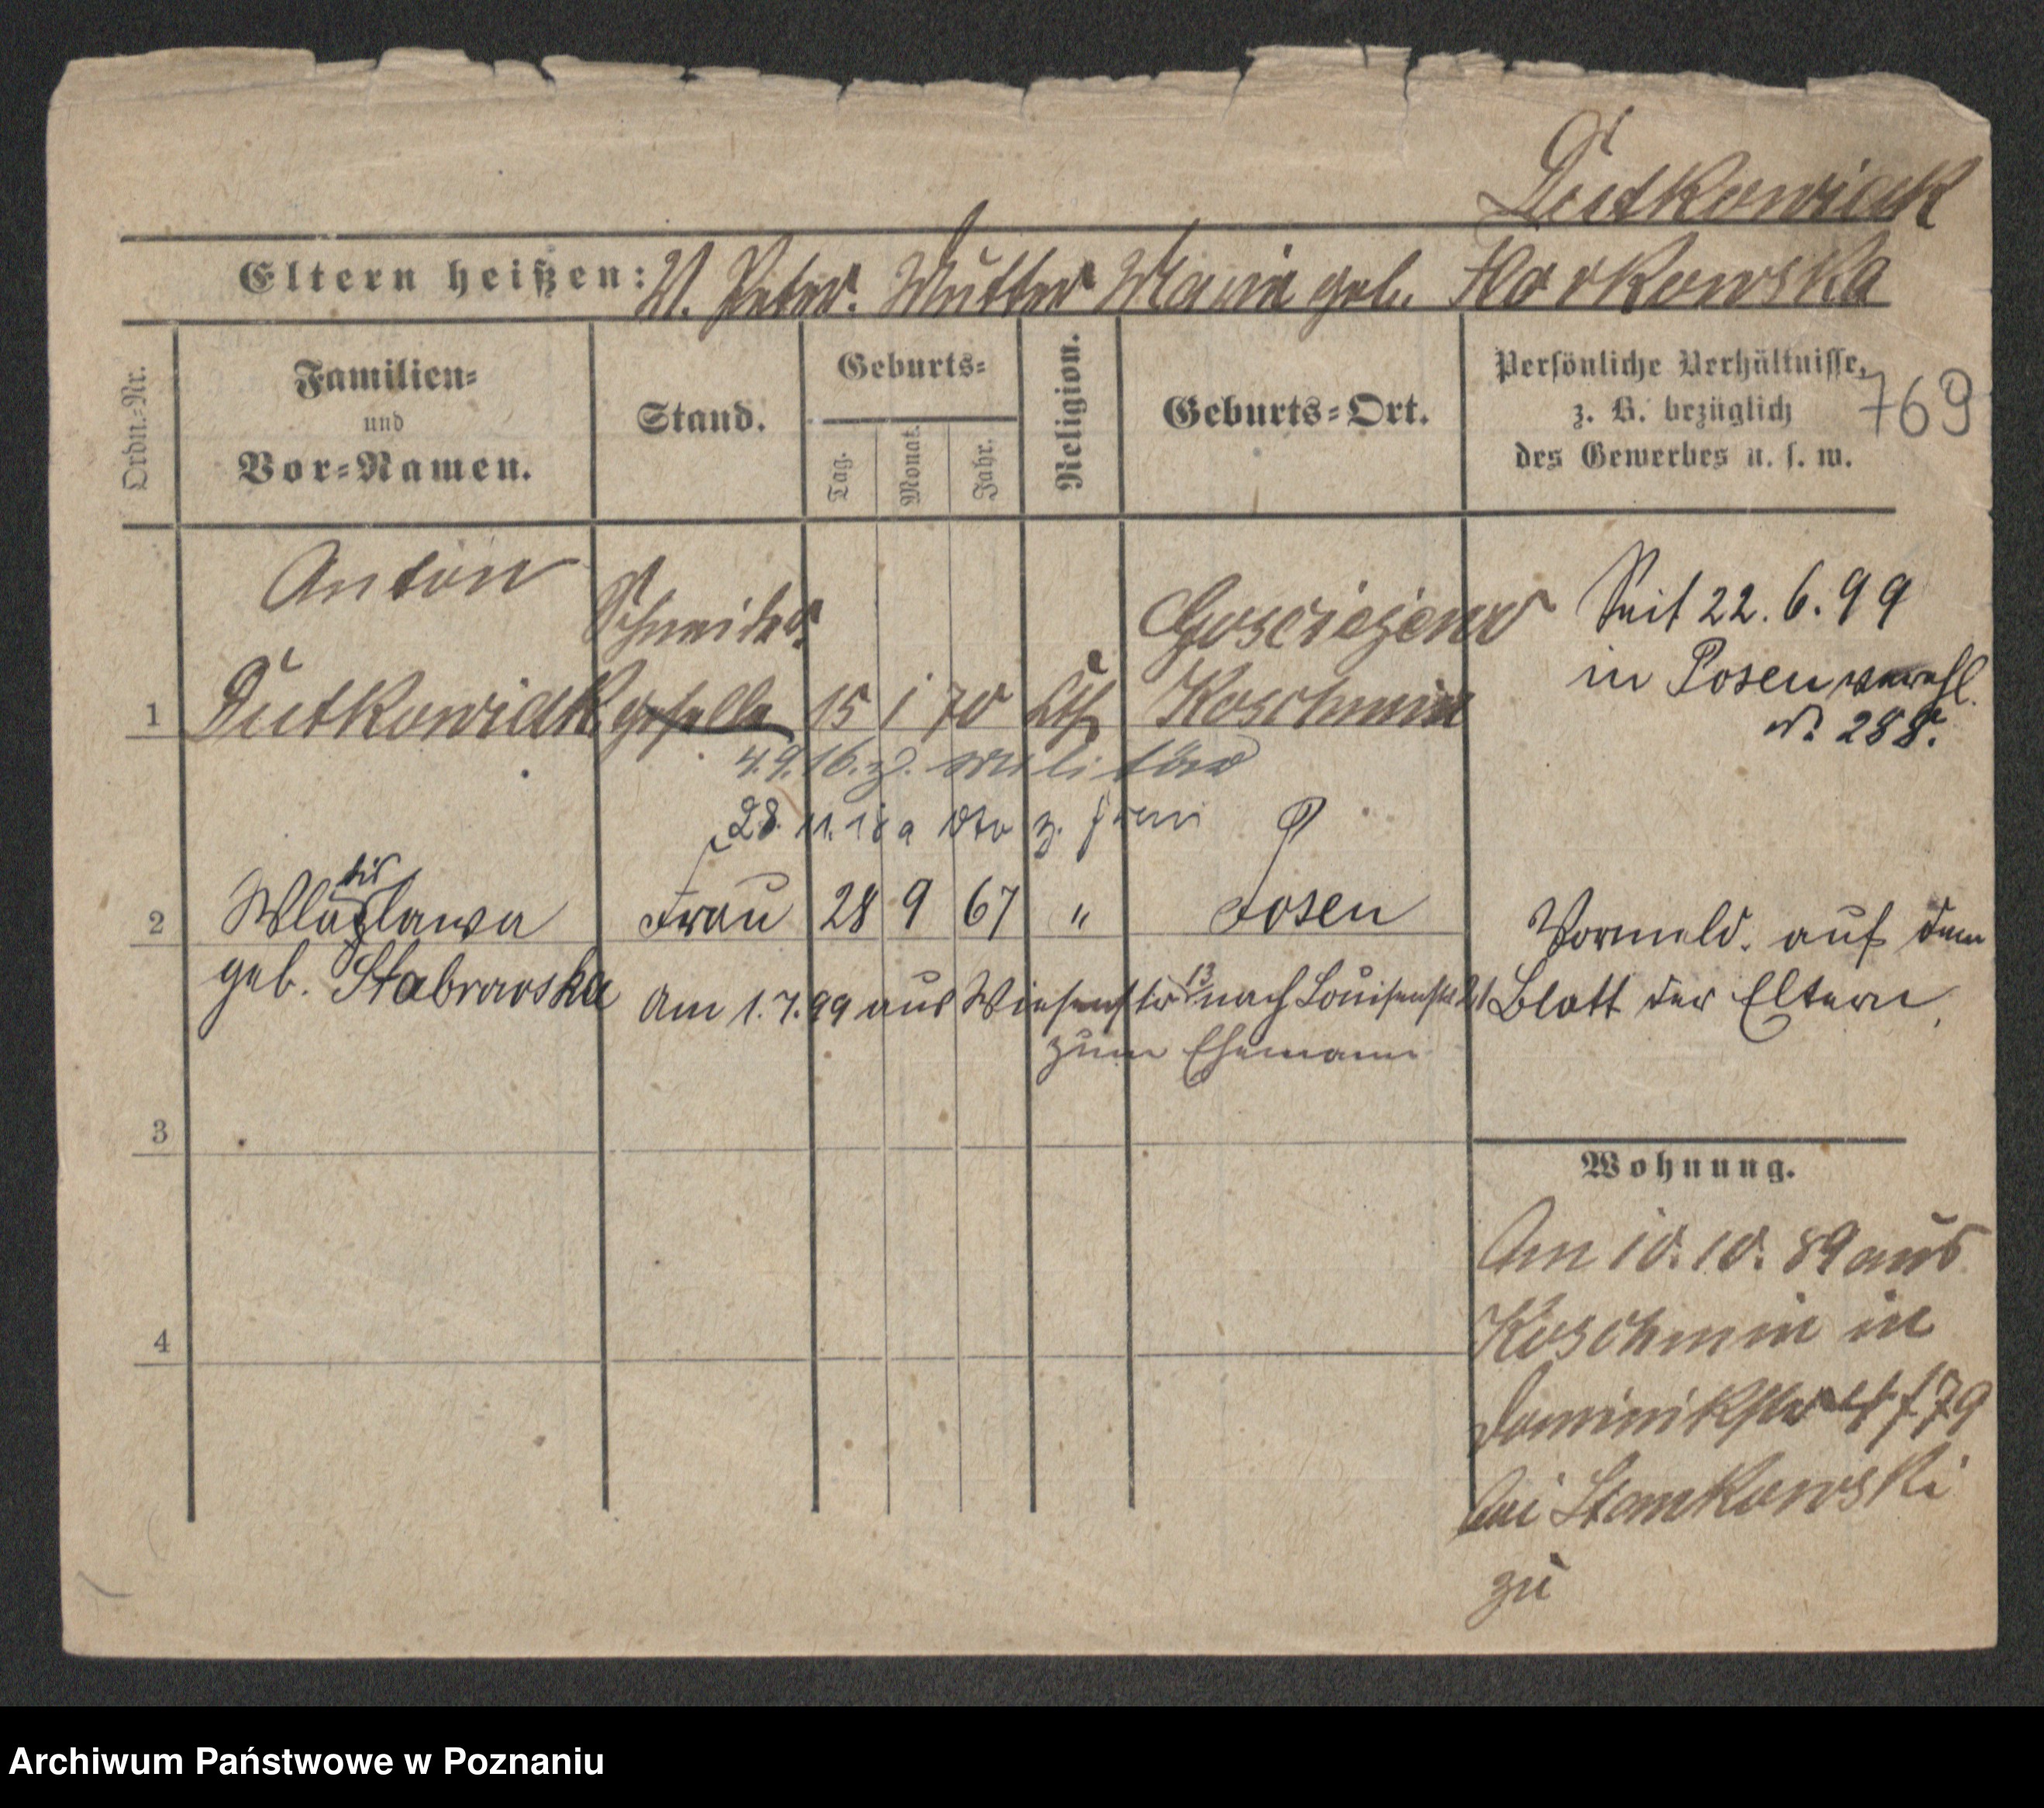 Dutkowiak
Eltern heißen: V. Peter. Mutter Marie geb. Horkowska
Ordn.-Nr.
Familien- und Vor-Namen.
Stand.
Geburts-
Tag.
Monat.
Jahr.
Religion.
Geburts-Ort.
Persönliche Verhältnisse,
z. B. bezüglich
des Gewerbes u. s. w.
769
Anton
Schneider
Gosciejewo
Seit 22. 6. 99
1 Dutkowiak geselle 15 1 70 kth Koschmin
in Posen verehl.
No 288.
4. 9. 16. z. Militär
28. 11. 18 a dto z. frau
2 Wladislawa Frau 28 9 67 " Posen
geb. Stabrowska
Vormeld. auf dem
Blatt der Eltern.
Am 1. 7. 99 aus Wiesenstr 13 nach Louisenstr 21
zum Ehemann
3
4
Wohnung.
Am 10. 10. 89 aus
Koschmin in
Dominikstr 79
bei Stankowski
zu
Archiwum Państwowe w Poznaniu